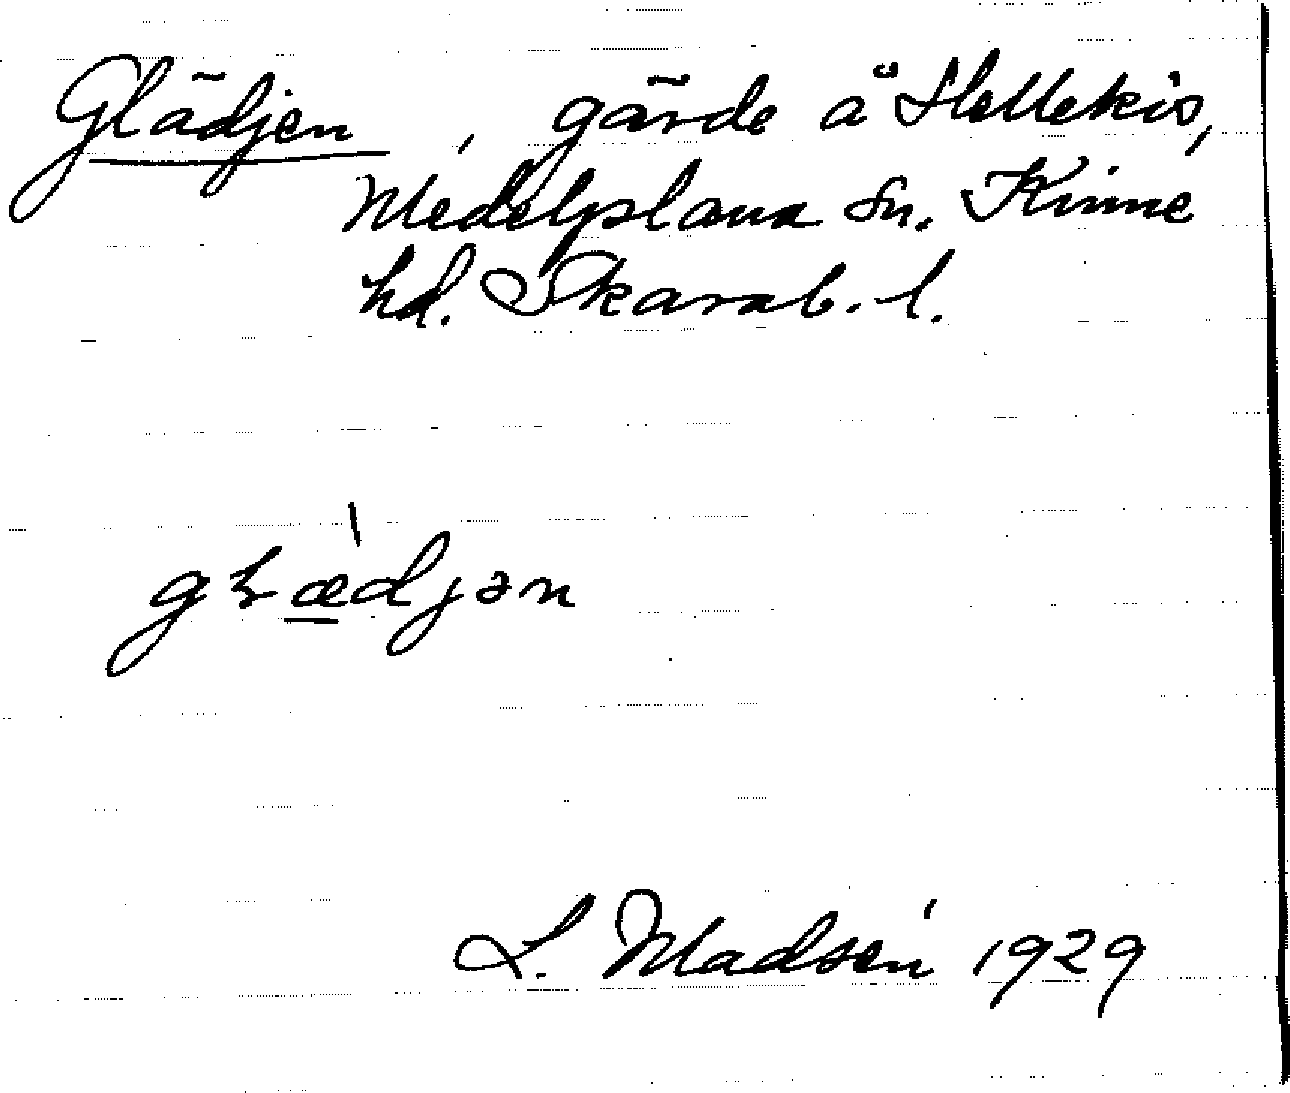 Glädjen, gärde å Hellekis,
Medelplana sn. Kinne
hd. Skarab. l.
gɫæ̲̀djən
L. Madsén 1929